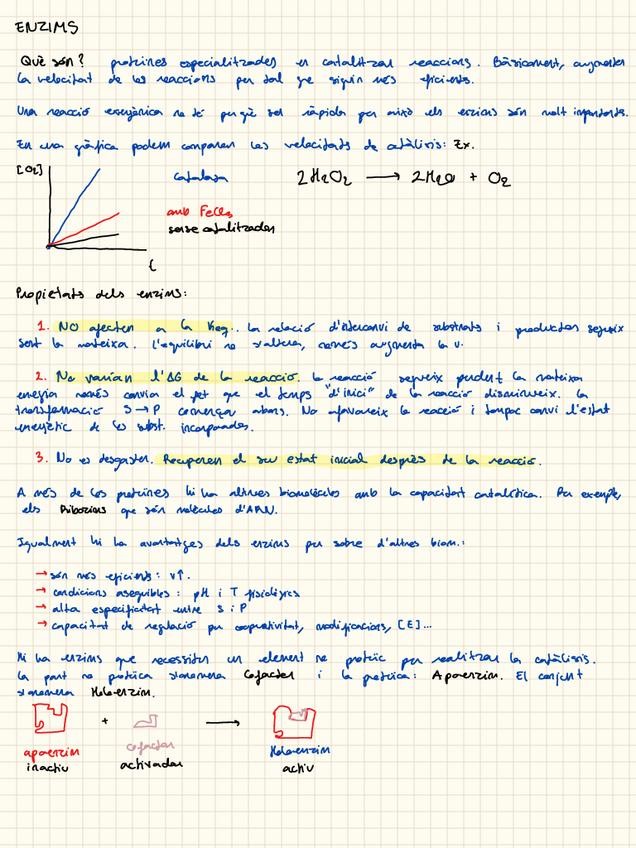 ENZIMS
Què són? proteïnes especialitzades en catalitzar reaccions. Bàsicament, augmenten
la velocitat de les reaccions per tal que siguin més eficients.
Una reacció exergònica no té perquè ser ràpida per això els enzims són molt importants.
En una gràfica podem comparar les velocitats de catàlisis: Ex.
[O2]
catalasa
2H2O2 → 2H2O + O2
amb FeCl3
sense catalitzador
t
Propietats dels enzims:
1. NO afecten a la Keq. La relació d'intercanvi de substrats i productes segueix
sent la mateixa. L'equilibri no s'altera, només augmenta la v.
2. No varian l'ΔG de la reacció. La reacció segueix perdent la mateixa
energia només canvia el fet que el temps "d'inici" de la reacció disminueix. La
transformació S→P comença abans. No afavoreix la reacció i tampoc canvi l'estat
energètic de les subst. incorporades.
3. No es desgasten. Recuperen el seu estat inicial després de la reacció.
A més de les proteïnes hi ha altres biomolècules amb la capacitat catalítica. Per exemple,
els Ribozims que són molècules d'ARN.
Igualment hi ha avantatges dels enzims per sobre d'altres biom.:
→ són més eficients: v↑.
→ condicions assequibles: pH i T fisiològics
→ alta especificitat entre S i P
→ capacitat de regulació per cooperativitat, modificacions, [E]...
Hi ha enzims que necessiten un element no proteic per realitzar la catàlisis.
La part no proteica s'anomena Cofactor i la proteica: Apoenzim. El conjunt
s'anomena Holoenzim.
+ →
apoenzim cofactor Holoenzim
inactiu activador actiu